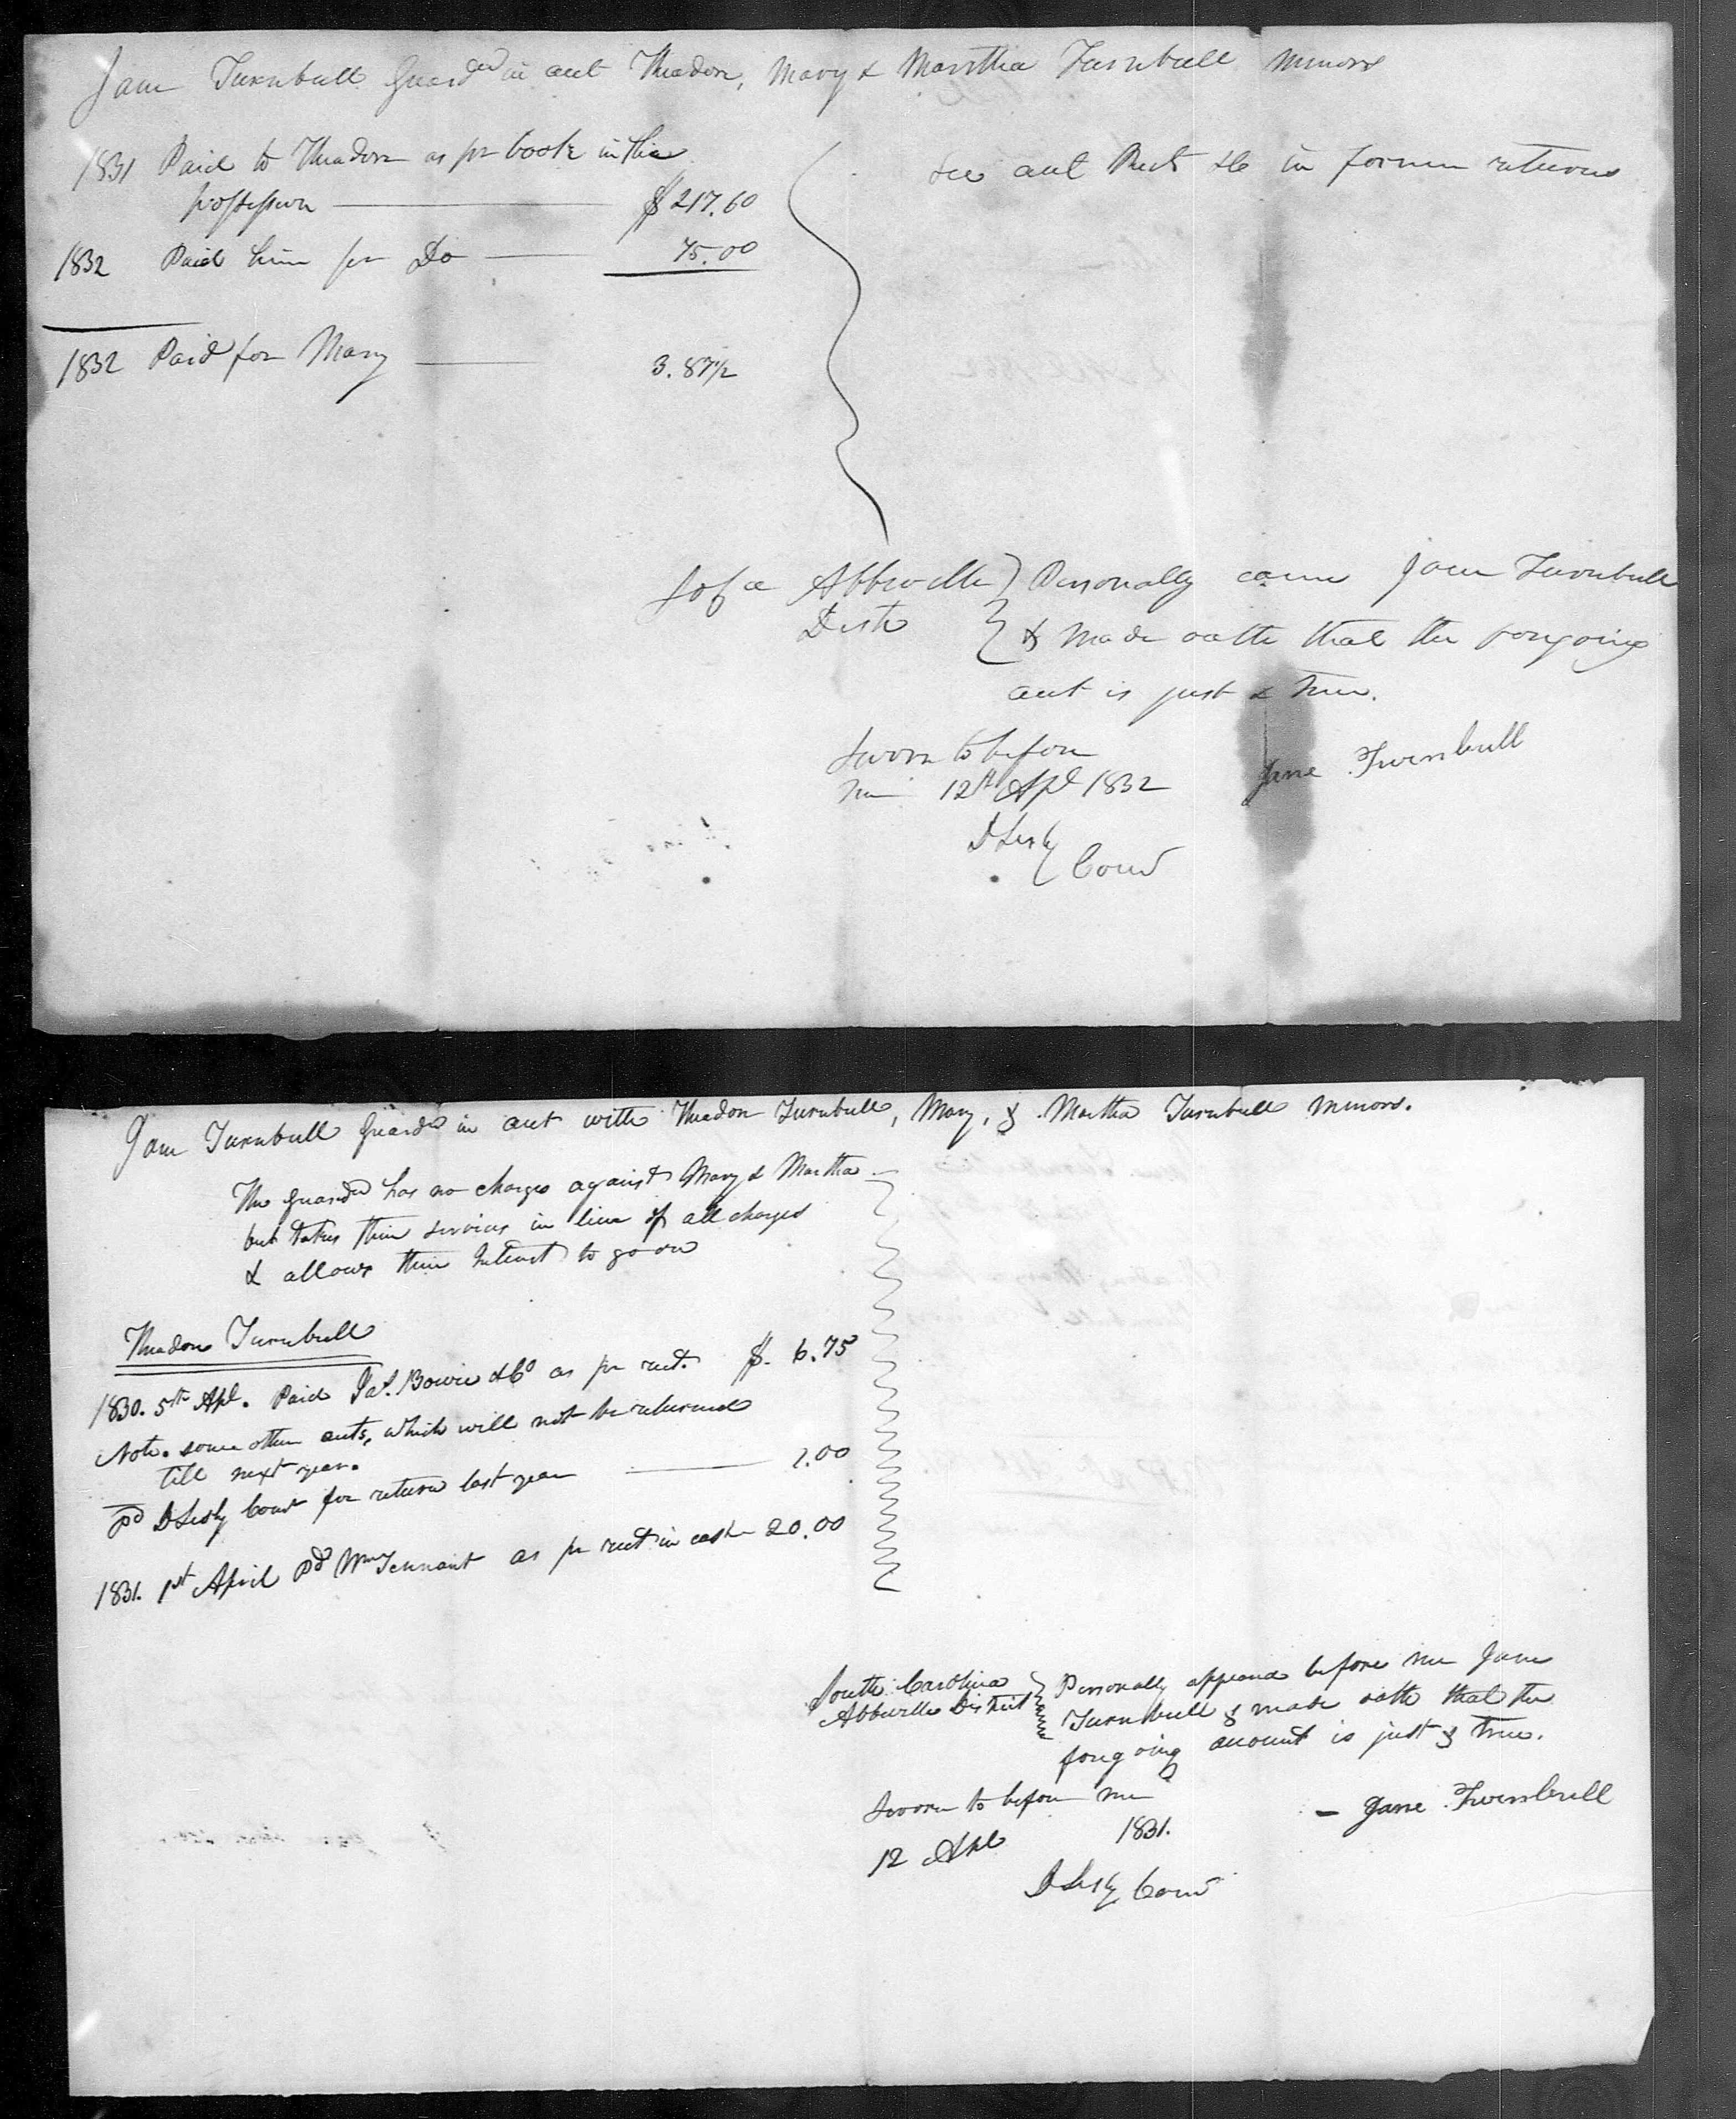 Jane Turnbull Guardn in act Theadore, Mary & Marttha Turnbull Minors
1831 Paid to Theadore as pr book in his
possession $217.60
1832 Paid him pr Do 75.00
1832 Paid for Mary 3.87½
See act Rects &c in former returns
So Ca Abbeville Distr } Personally came Jane Turnbull
& made oath that the forgoing
act is just & true.
Sworn to before
me 12th Apl 1832
Jane Turnbull
D Lesly
Cour
Jane Turnbull Guardn in act with Theadore Turnbull, Mary, & Marttha Turnbull minors.
The Guardn has no charges against Mary & Marttha
but takes their services in lieu of all charges
& allows their Interest to go on
Theadore Turnbull
1830. 5th Apl. Paid Jas. Bowie & Co as pr rect. $. 6.75
Note. some other acts, which will not be returned
till next year.
Pd D Lesly Cour for return last year 1.00
1831. 1st April Pd Wm Tennant as pr rect in cash 20.00
South Carolina
Abbeville District } Personally appeared before me Jane
Turnbull & made oath that the
forgoing account is just & true.
Sworn to before me
12 Apl 1831.
- Jane Turnbull
D Lesly Cour